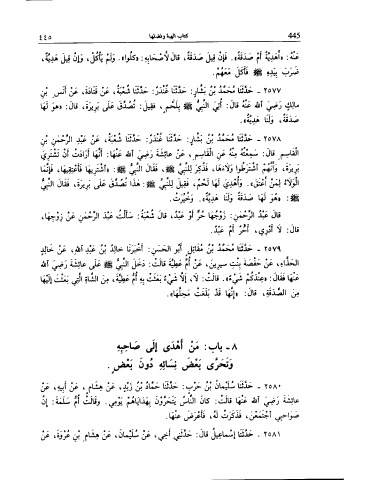 ٤٤٥ كتاب الهبة وفضلها 445
عَنْهُ: «أَهَدِيَّةٌ أَمْ صَدَقَةٌ». فَإِنْ قِيلَ صَدَقَةٌ، قَالَ لأَصْحَابِهِ: «كُلُوا». وَلَمْ يَأْكُلْ، وَإِنْ قِيلَ هَدِيَّةٌ،
ضَرَبَ بِيَدِهِ ﷺ فَأَكَلَ مَعَهُمْ.
٢٥٧٧ - حَدَّثَنَا مُحَمَّدُ بْنُ بَشَّارٍ: حَدَّثَنَا غُنْدَرٌ: حَدَّثَنَا شُعْبَةُ، عَنْ قَتَادَةَ، عَنْ أَنَسِ بْنِ
مالِكٍ رَضِيَ اللهُ عَنْهُ قَالَ: أُتِيَ النَّبِيُّ ﷺ بِلَحْمٍ، فَقِيلَ: تُصُدِّقَ عَلَى بَرِيرَةَ، قَالَ: «هُوَ لَهَا
صَدَقَةٌ، وَلَنَا هَدِيَّةٌ».
٢٥٧٨ - حَدَّثَنَا مُحَمَّدُ بْنُ بَشَّارٍ: حَدَّثَنَا غُنْدَرٌ: حَدَّثَنَا شُعْبَةُ، عَنْ عَبْدِ الرَّحْمٰنِ بْنِ
الْقَاسِمِ قَالَ: سَمِعْتُهُ مِنْهُ عَنِ الْقَاسِمِ، عَنْ عائِشَةَ رَضِيَ اللهُ عَنْهَا: أَنَّهَا أَرَادَتْ أَنْ تَشْتَرِيَ
بَرِيرَةَ، وَأَنَّهُمُ اشْتَرَطُوا وَلَاءَهَا، فَذُكِرَ لِلنَّبِيِّ ﷺ، فَقَالَ النَّبِيُّ ﷺ: «اشْتَرِيهَا فَأَعْتِقِيهَا، فَإِنَّمَا
الْوَلَاءُ لِمَنْ أَعْتَقَ». وَأُهْدِيَ لَهَا لَحْمٌ، فَقِيلَ لِلنَّبِيِّ ﷺ: هٰذَا تُصُدِّقَ عَلَى بَرِيرَةَ، فَقَالَ النَّبِيُّ
ﷺ: «هُوَ لَهَا صَدَقَةٌ وَلَنَا هَدِيَّةٌ». وَخُيِّرَتْ.
قَالَ عَبْدُ الرَّحْمٰنِ: زَوْجُهَا حُرٌّ أَوْ عَبْدٌ، قَالَ شُعْبَةُ: سَأَلْتُ عَبْدَ الرَّحْمٰنِ عَنْ زَوْجِهَا،
قَالَ: لَا أَدْرِي، أَحُرٌّ أَمْ عَبْدٌ.
٢٥٧٩ - حَدَّثَنَا مُحَمَّدُ بْنُ مُقَاتِلٍ أَبُو الحَسَنِ: أَخْبَرَنَا خَالِدُ بْنُ عَبْدِ اللهِ، عَنْ خَالِدٍ
الحَذَّاءِ، عَنْ حَفْصَةَ بِنْتِ سِيرِينَ، عَنْ أُمِّ عَطِيَّةَ قَالَتْ: دَخَلَ النَّبِيُّ ﷺ عَلَى عائِشَةَ رَضِيَ اللهُ
عَنْهَا فَقَالَ: «عِنْدَكُمْ شَيْءٌ». قَالَتْ: لَا، إِلَّا شَيْءٌ بَعَثَتْ بِهِ أُمُّ عَطِيَّةَ، مِنَ الشَّاةِ الَّتِي بَعَثْتَ إِلَيْهَا
مِنَ الصَّدَقَةِ، قَالَ: «إِنَّهَا قَدْ بَلَغَتْ مَحِلَّهَا».
٨ - باب: مَنْ أَهْدَى إِلَى صَاحِبِهِ
وَتَحَرَّى بَعْضَ نِسَائِهِ دُونَ بَعْضٍ.
٢٥٨٠ - حَدَّثَنَا سُلَيْمَانُ بْنُ حَرْبٍ: حَدَّثَنَا حَمَّادُ بْنُ زَيْدٍ، عَنْ هِشَامٍ، عَنْ أَبِيهِ، عَنْ
عائِشَةَ رَضِيَ اللهُ عَنْهَا قَالَتْ: كانَ النَّاسُ يَتَحَرَّوْنَ بِهَدَايَاهُمْ يَوْمِي. وَقَالَتْ أُمُّ سَلَمَةَ: إِنَّ
صَوَاحِبِي اجْتَمَعْنَ، فَذَكَرَتْ لَهُ، فَأَعْرَضَ عَنْهَا.
٢٥٨١ - حَدَّثَنَا إِسْماعِيلُ قَالَ: حَدَّثَنِي أَخِي، عَنْ سُلَيْمانَ، عَنْ هِشَامِ بْنِ عُرْوَةَ، عَنْ